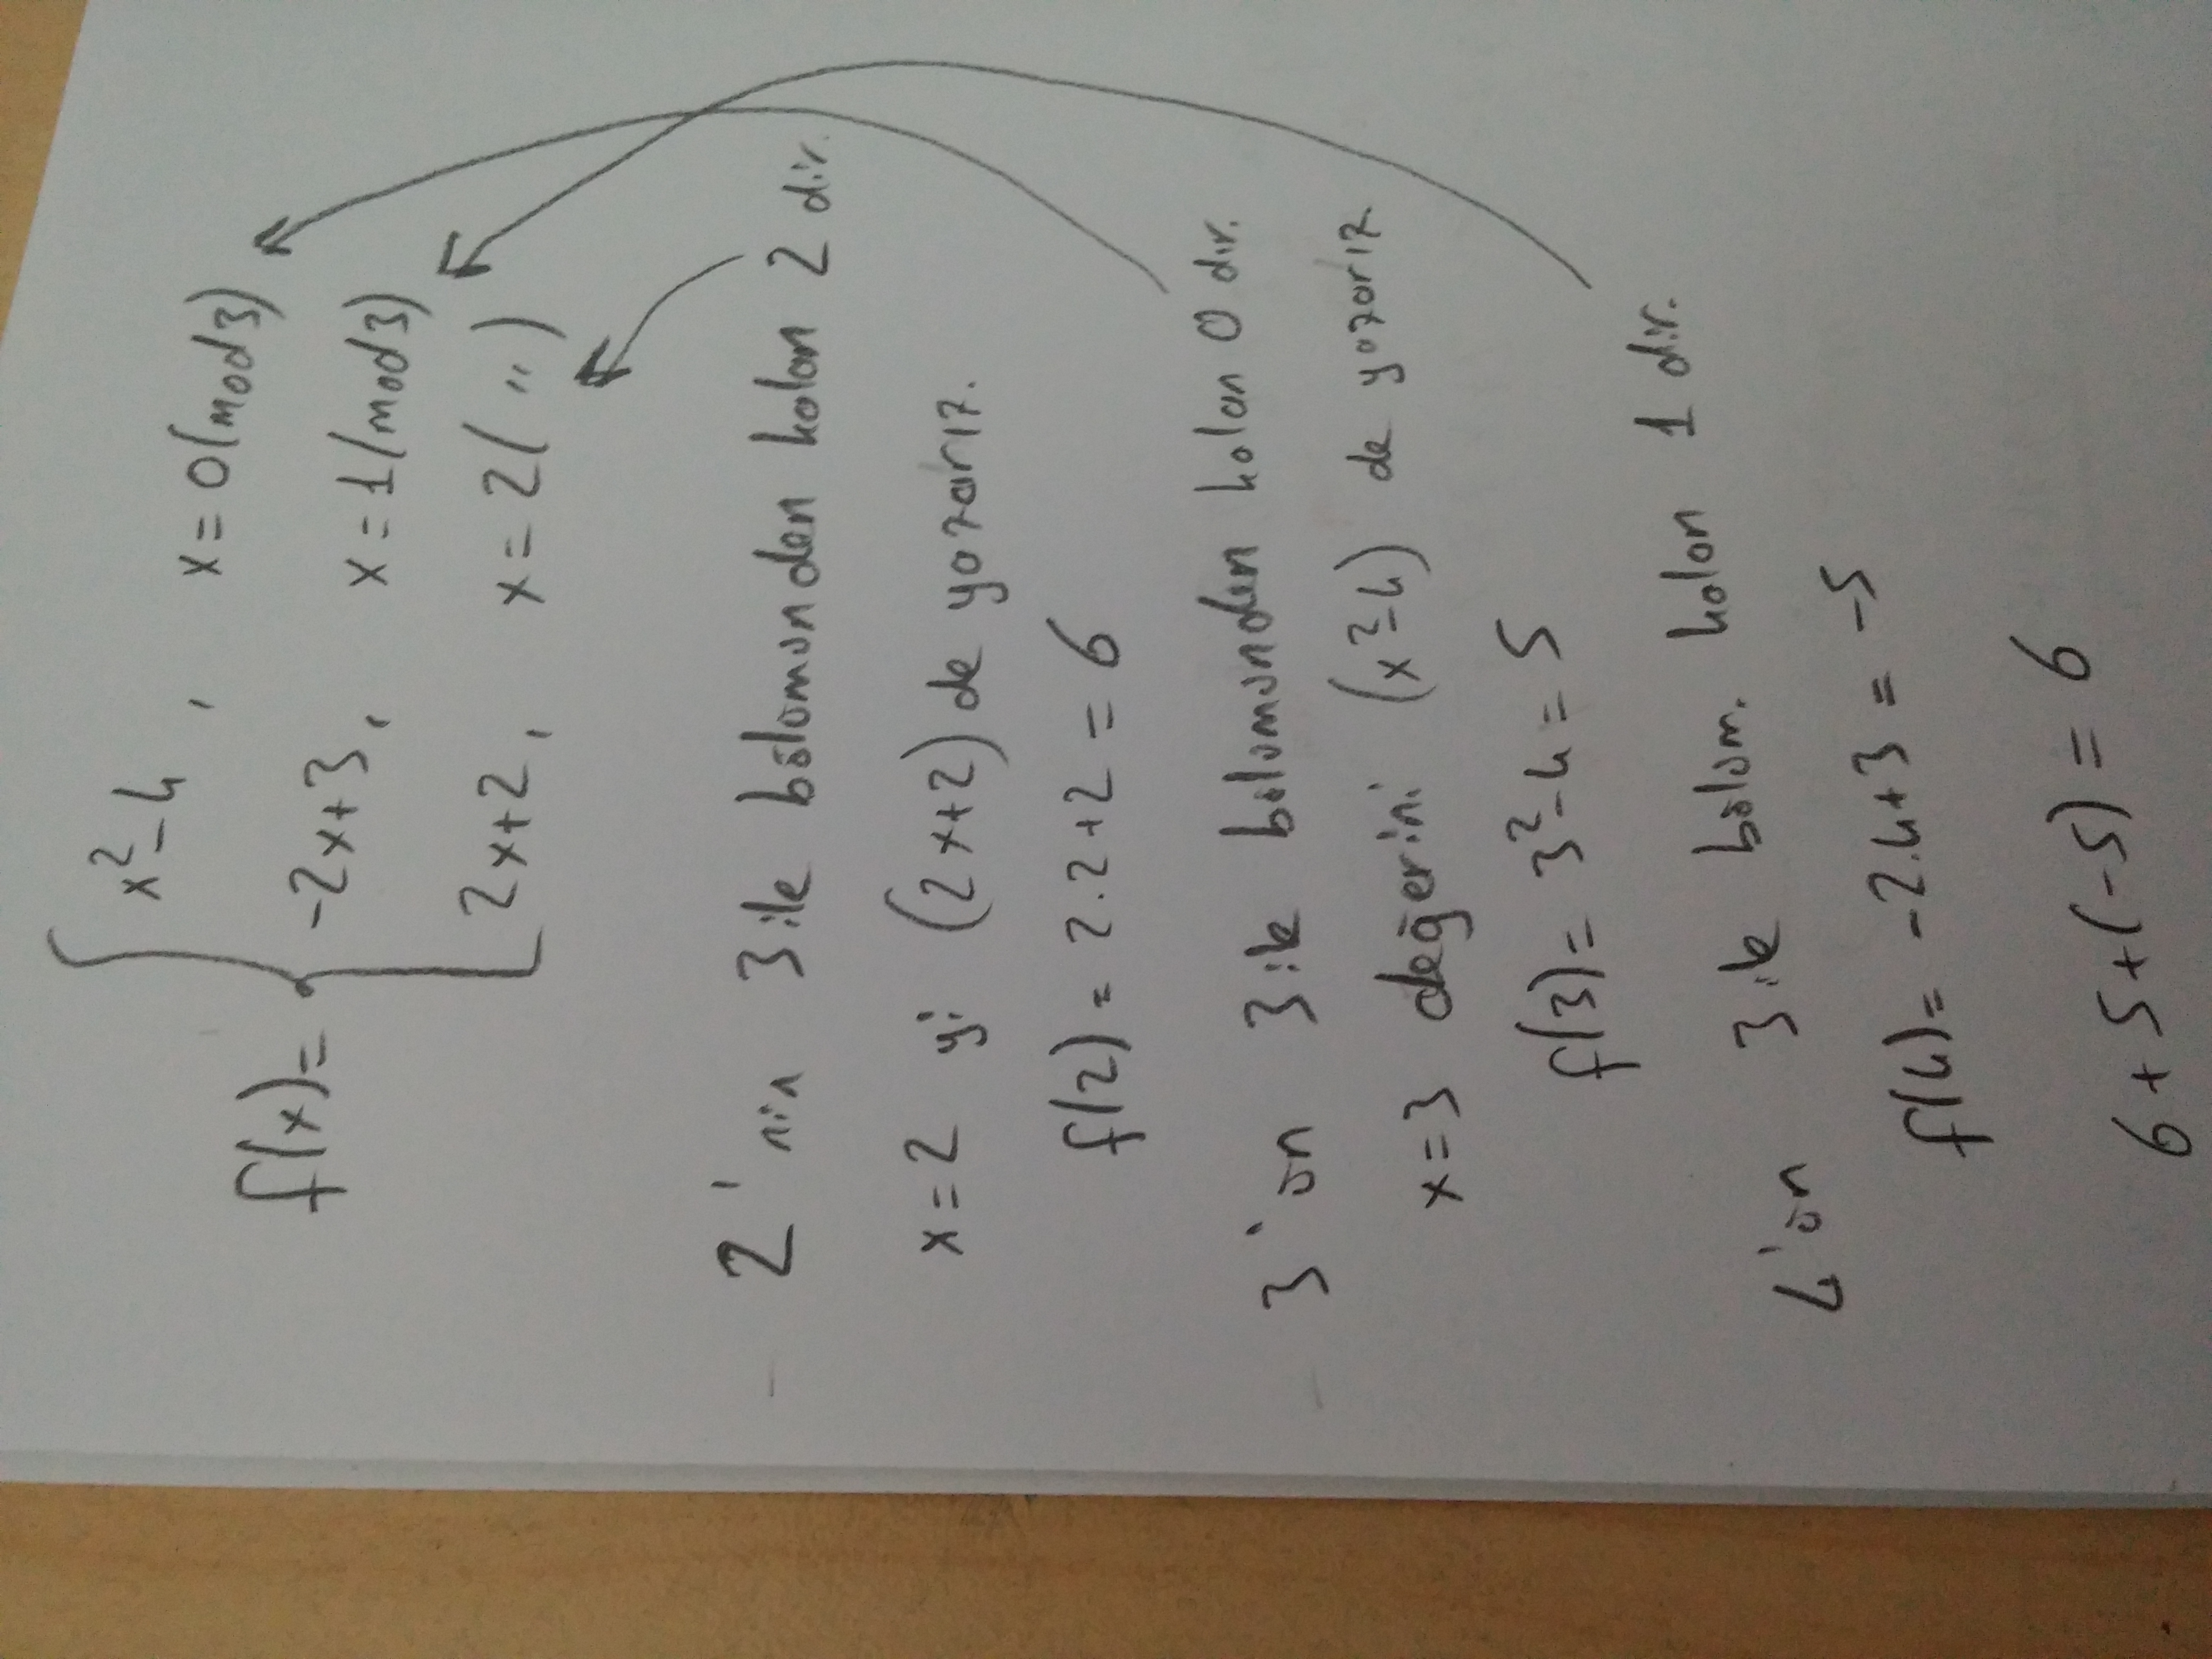 f(x) = { x²-4 , x = 0 (mod 3)
-2x+3 , x = 1 (mod 3)
2x+2 , x = 2 ( " )
2'nin 3 ile bölümünden kalan 2 dir.
x = 2 yi (2x+2) de yazarız.
f(2) = 2.2+2 = 6
3'ün 3 ile bölümünden kalan 0 dır.
x=3 değerini (x²-4) de yazarız.
f(3) = 3²-4 = 5
4'ün 3 ile bölüm. kalan 1 dir.
f(4) = -2.4+3 = -5
6+5+(-5) = 6